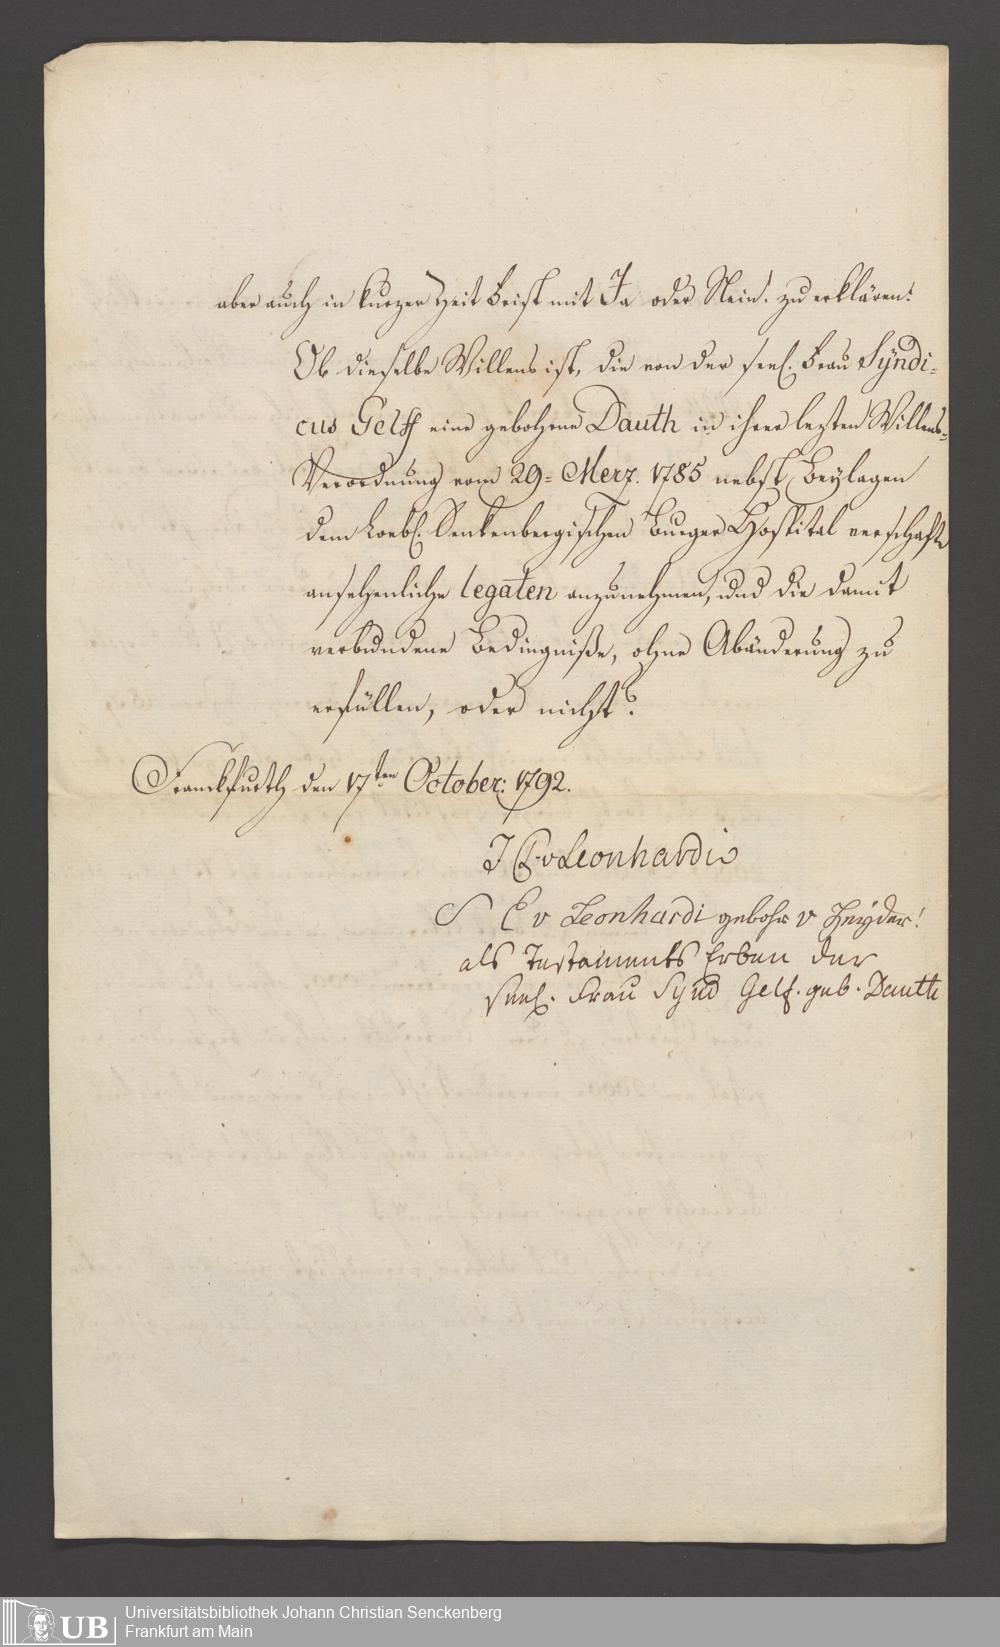 aber auch in kurzer Zeit Frist mit Ja oder Nein. zu erklären:
Ob dieselbe Willens ist, die von der seel. Frau Syndi-
cus Gelff eine gebohrne Dauth in ihrer lezten Willens-
Verordnung vom 29= Merz. 1785 nebst Beylagen
dem Loebl. Senkenbergischen Burger Hospital verschafte
ansehenliche legaten anzunehmen, und die damit
verbundene Bedingniße, ohne Abänderung zu
erfüllen, oder nicht?
Franckfurth den 17ten October: 1792.
J P. v Leonhardi
S E v Leonhardi gebohr v Heyder!
als Testaments Erben der
seel. Frau Synd Gelf. geb. Dauth
UB Universitätsbibliothek Johann Christian Senckenberg
Frankfurt am Main